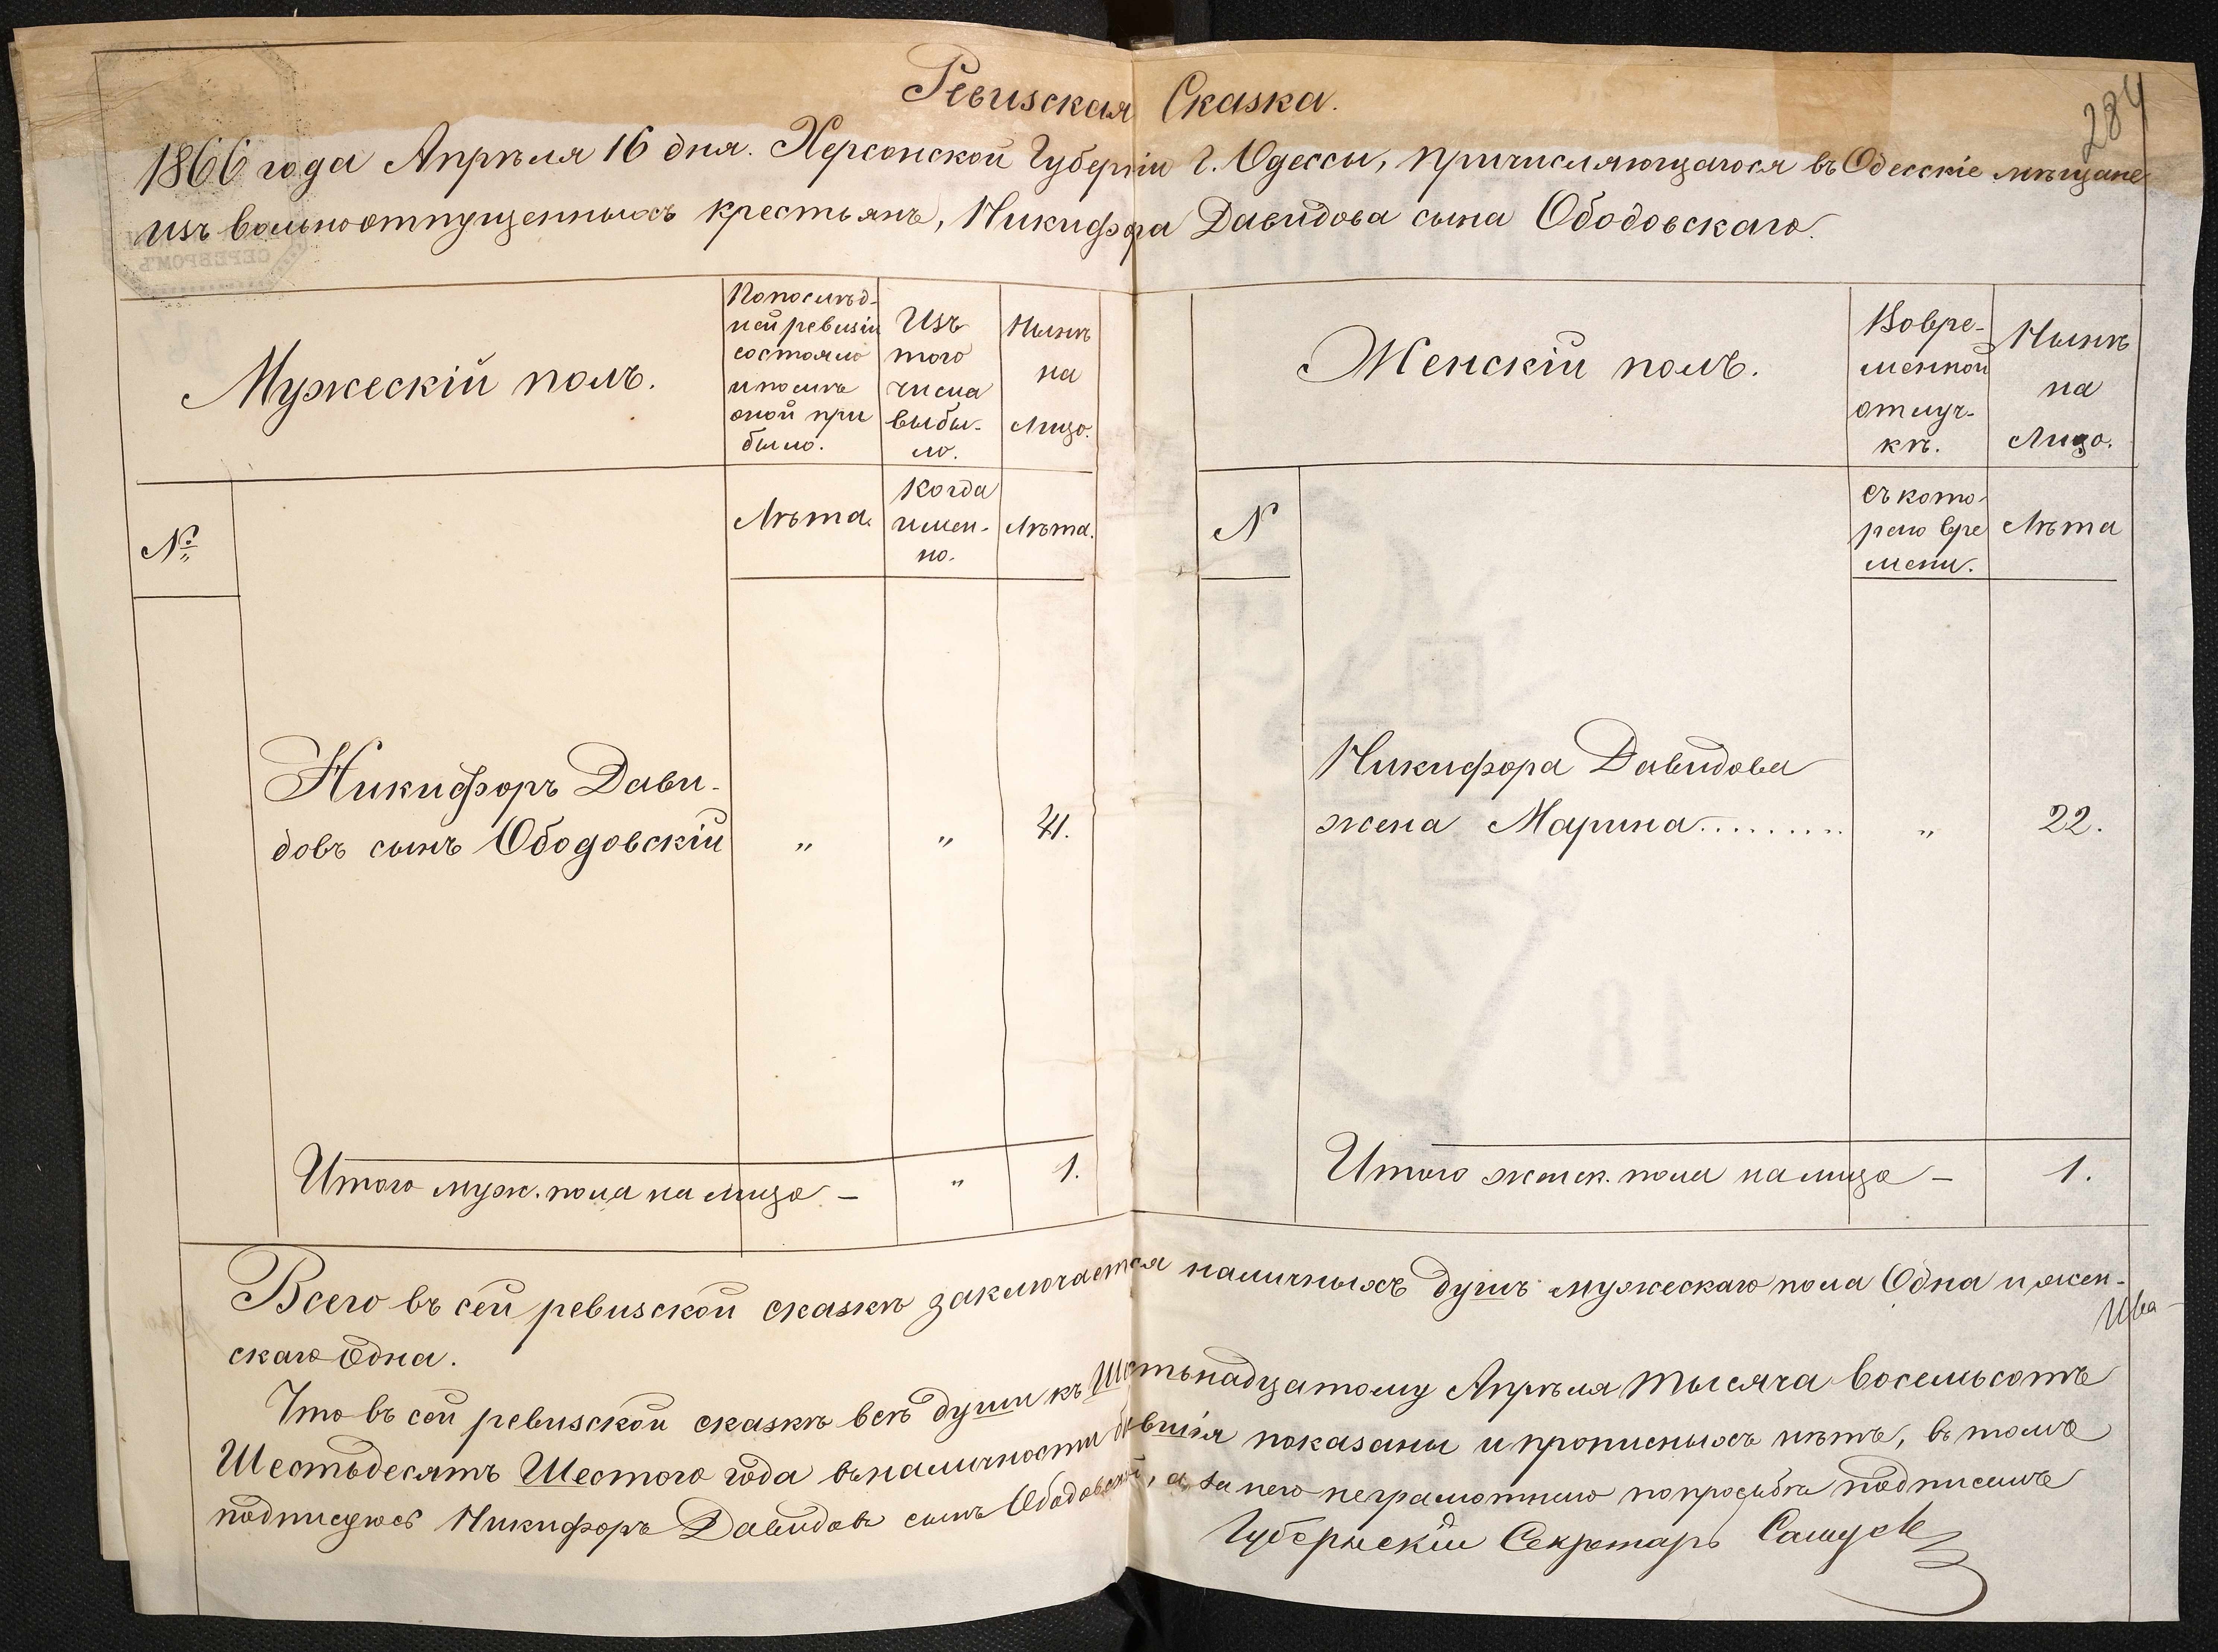 Ревизская Сказка.
284
1866 года Апрѣля 16 дня. Херсонской Губерніи г. Одессы, причисляющагося въ Одесскіе мѣщане
изъ вольноотпущенныхъ крестьянъ, Никифора Давидова сына Ободовскаго.
СЕРЕБРОМЪ
Мужескій полъ.
По послѣд-
ней ревизіи
состояло
и послѣ
оной при
было.
Изъ
того
числа
выбы-
ло.
Нынѣ
на
Лицо.
№
Лѣта.
Когда
имен-
но.
Лѣта.
Никифоръ Дави-
довъ сынъ Ободовскій " "
Итого муж. пола на лицо – " 1.
Женскій полъ.
Во вре-
менной
отлуч-
кѣ.
Нынѣ
на
Лицо.
N
съ кото-
раго вре
мени.
Лѣта
Никифора Давидова
жена Марина......... " 22.
Итого женск. пола на лицо – 1.
18
Всего въ сей ревизской сказкѣ заключается наличныхъ душъ мужескаго пола Одна и жен-
скаго Одна.
Что въ сей ревизской сказкѣ всѣ души къ Шестьнадцатому Апрѣля тысяча восемьсотъ
Шестьдесятъ Шестого года въ наличности бывшія показаны и прописныхъ нѣтъ, въ томъ
подписуюсь Никифоръ Давидовъ сынъ Ободовской, а за него неграмотнаго по просьбѣ подписалъ
Губернскій Секретарь